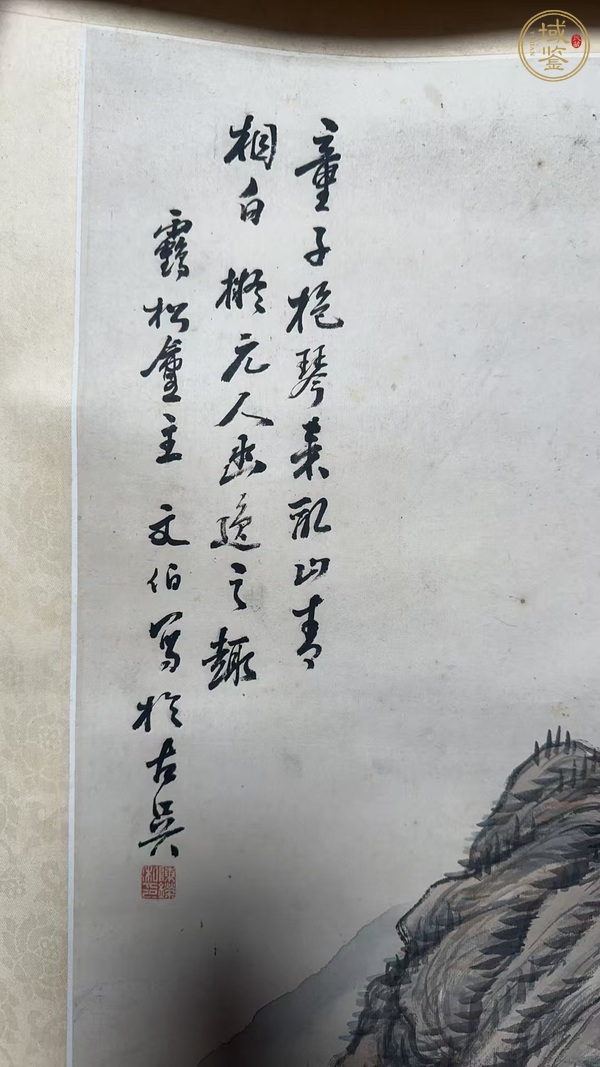 童子抱琴來山青
相白 擬元人幽逸之趣
靏松盦主 文伯寫於古吳
域鉴